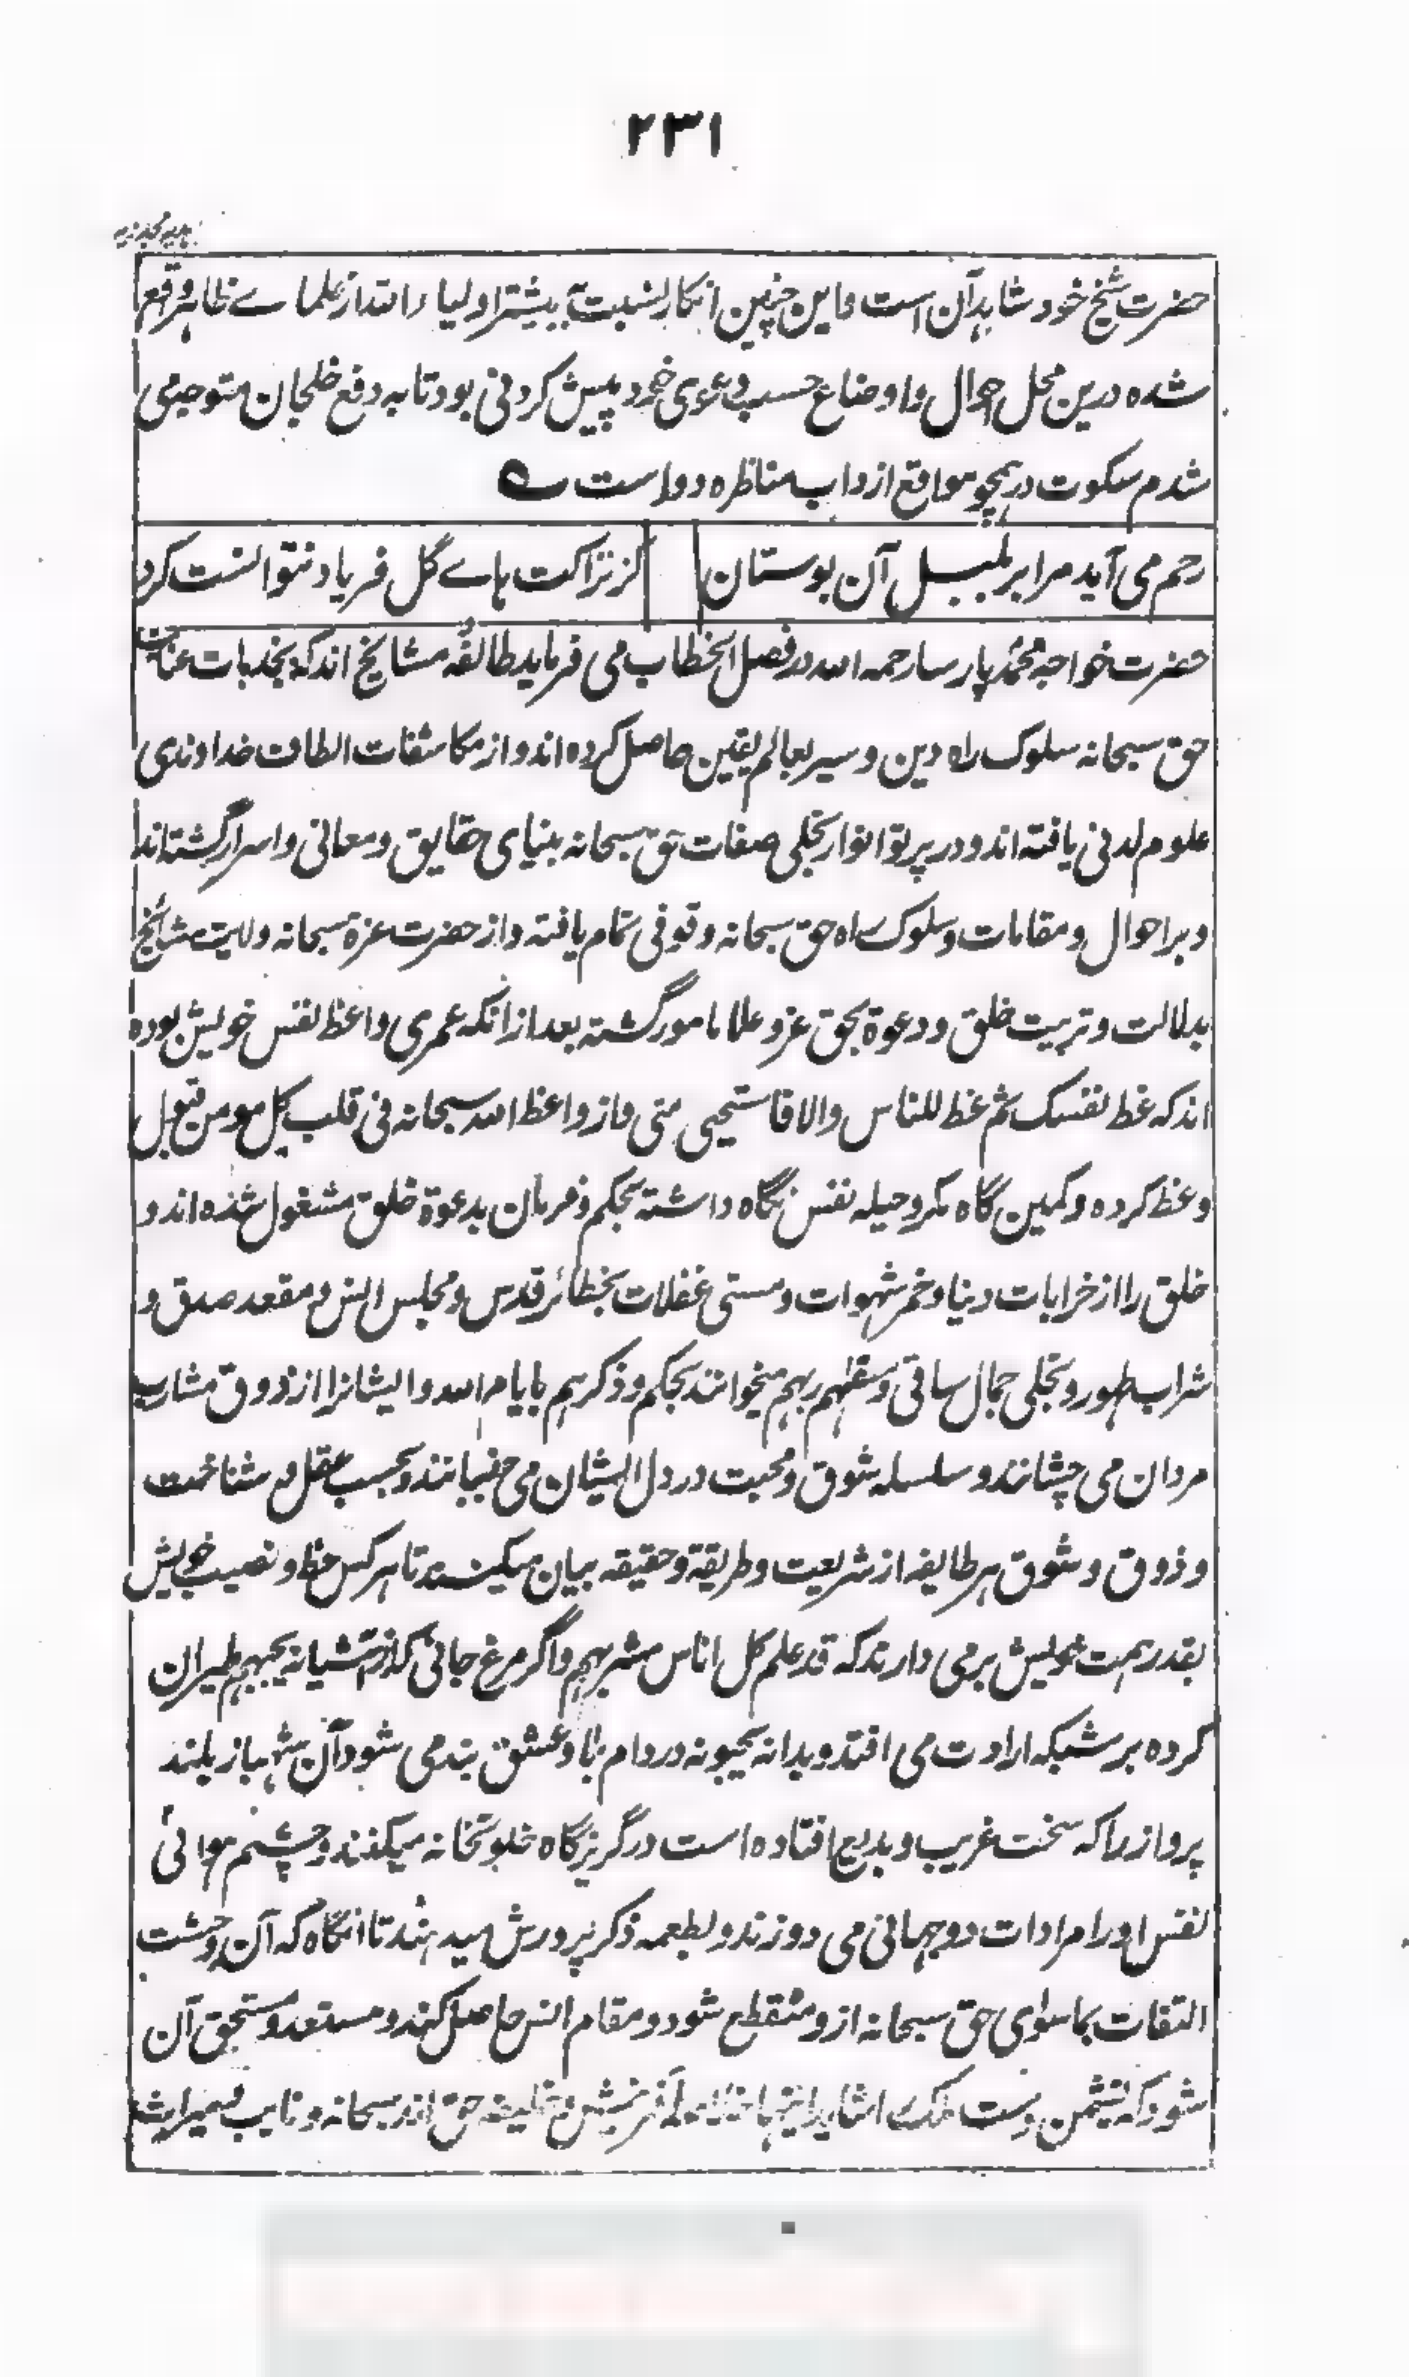 ۲۳۱
حضرت شیخ خود شاهد آن است و این چنین انکار نسبت به بیشتر اولیاء الله از علمای ظاهر واقع
شده درین محل احوال و اوضاع حسب دعوی خود پیش کردنی بود تا به دفع خلجان متوجه می
شدم سکوت در همچو مواقع از داب مناظره دور است ے
رحم می آید مرا بر بلبل آن بوستان
کز نزاکت هاے گل فریاد نتوانست کرد
حضرت خواجه محمد پارسا رحمه الله در فصل الخطاب می فرماید طائفه مشایخ اند که بجذبات عنایت
حق سبحانه سلوک راه دین و سیر بعالم یقین حاصل کرده اند و از مکاشفات الطاف خداوندی
علوم لدنی یافته اند و در پرتو انوار تجلی صفات حق سبحانه بینای حقایق و معانی و اسرار گشته اند
و بر احوال و مقامات و سلوک راه حق سبحانه وقوفی تمام یافته و از حضرت عزة سبحانه و ولایت مشائخ
بدلالت و تربیت خلق و دعوة بحق عز و علا مامور گشته بعد از انکه عمری واعظ نفس خویش بوده
اند که عظ نفسک ثم عظ للناس والا فاستحیی منی و از واعظ الله سبحانه فی قلب کل مومن قبول
وعظ کرده و کمین گاه مکر و حیله نفس نگاه داشته بحکم فرمان بدعوة خلق مشغول شده اند و
خلق را از خرابات دنیا و خمر شهوات و مستی غفلات بخطائر قدس و مجلس انس و مقعد صدق و
شراب طهور و تجلی جمال ساقی وسقهم ربهم میخوانند بحکم وذکرهم بایام الله و ایشانرا از ذوق مشارب
مردان می چشانند و سلسله شوق و محبت در دل ایشان می جنبانند و بحسب عقل و شناخت
و ذوق و شوق هر طایفه از شریعت و طریقة و حقیقه بیان میکنند تا هر کس حظ و نصیب خویش
بقدر همت خویش بر می دارند که قد علم کل اناس مشربهم و اگر مرغ جانی که از آشیانه یحبهم طیران
کرده بر شبکه ارادت می افتد و بدانه یحبونه در دام عشق بند می شود آن شهباز بلند
پرواز را که سخت غریب و بدیع افتاده است در گریزگاه خلوتخانه میکنند و چشم هوائی
نفس او را مرادات دو جهانی می دوزند و بطعمه ذکر پرورش میدهند تا انگاه که آن وحشت
التفات بماسوای حق سبحانه از و منقطع شود و مقام انس حاصل کند و مستعد و مستحق آن
شود که نشیمن دست ملک را شاید اینها خلیفه حق اند سبحانه و نایب